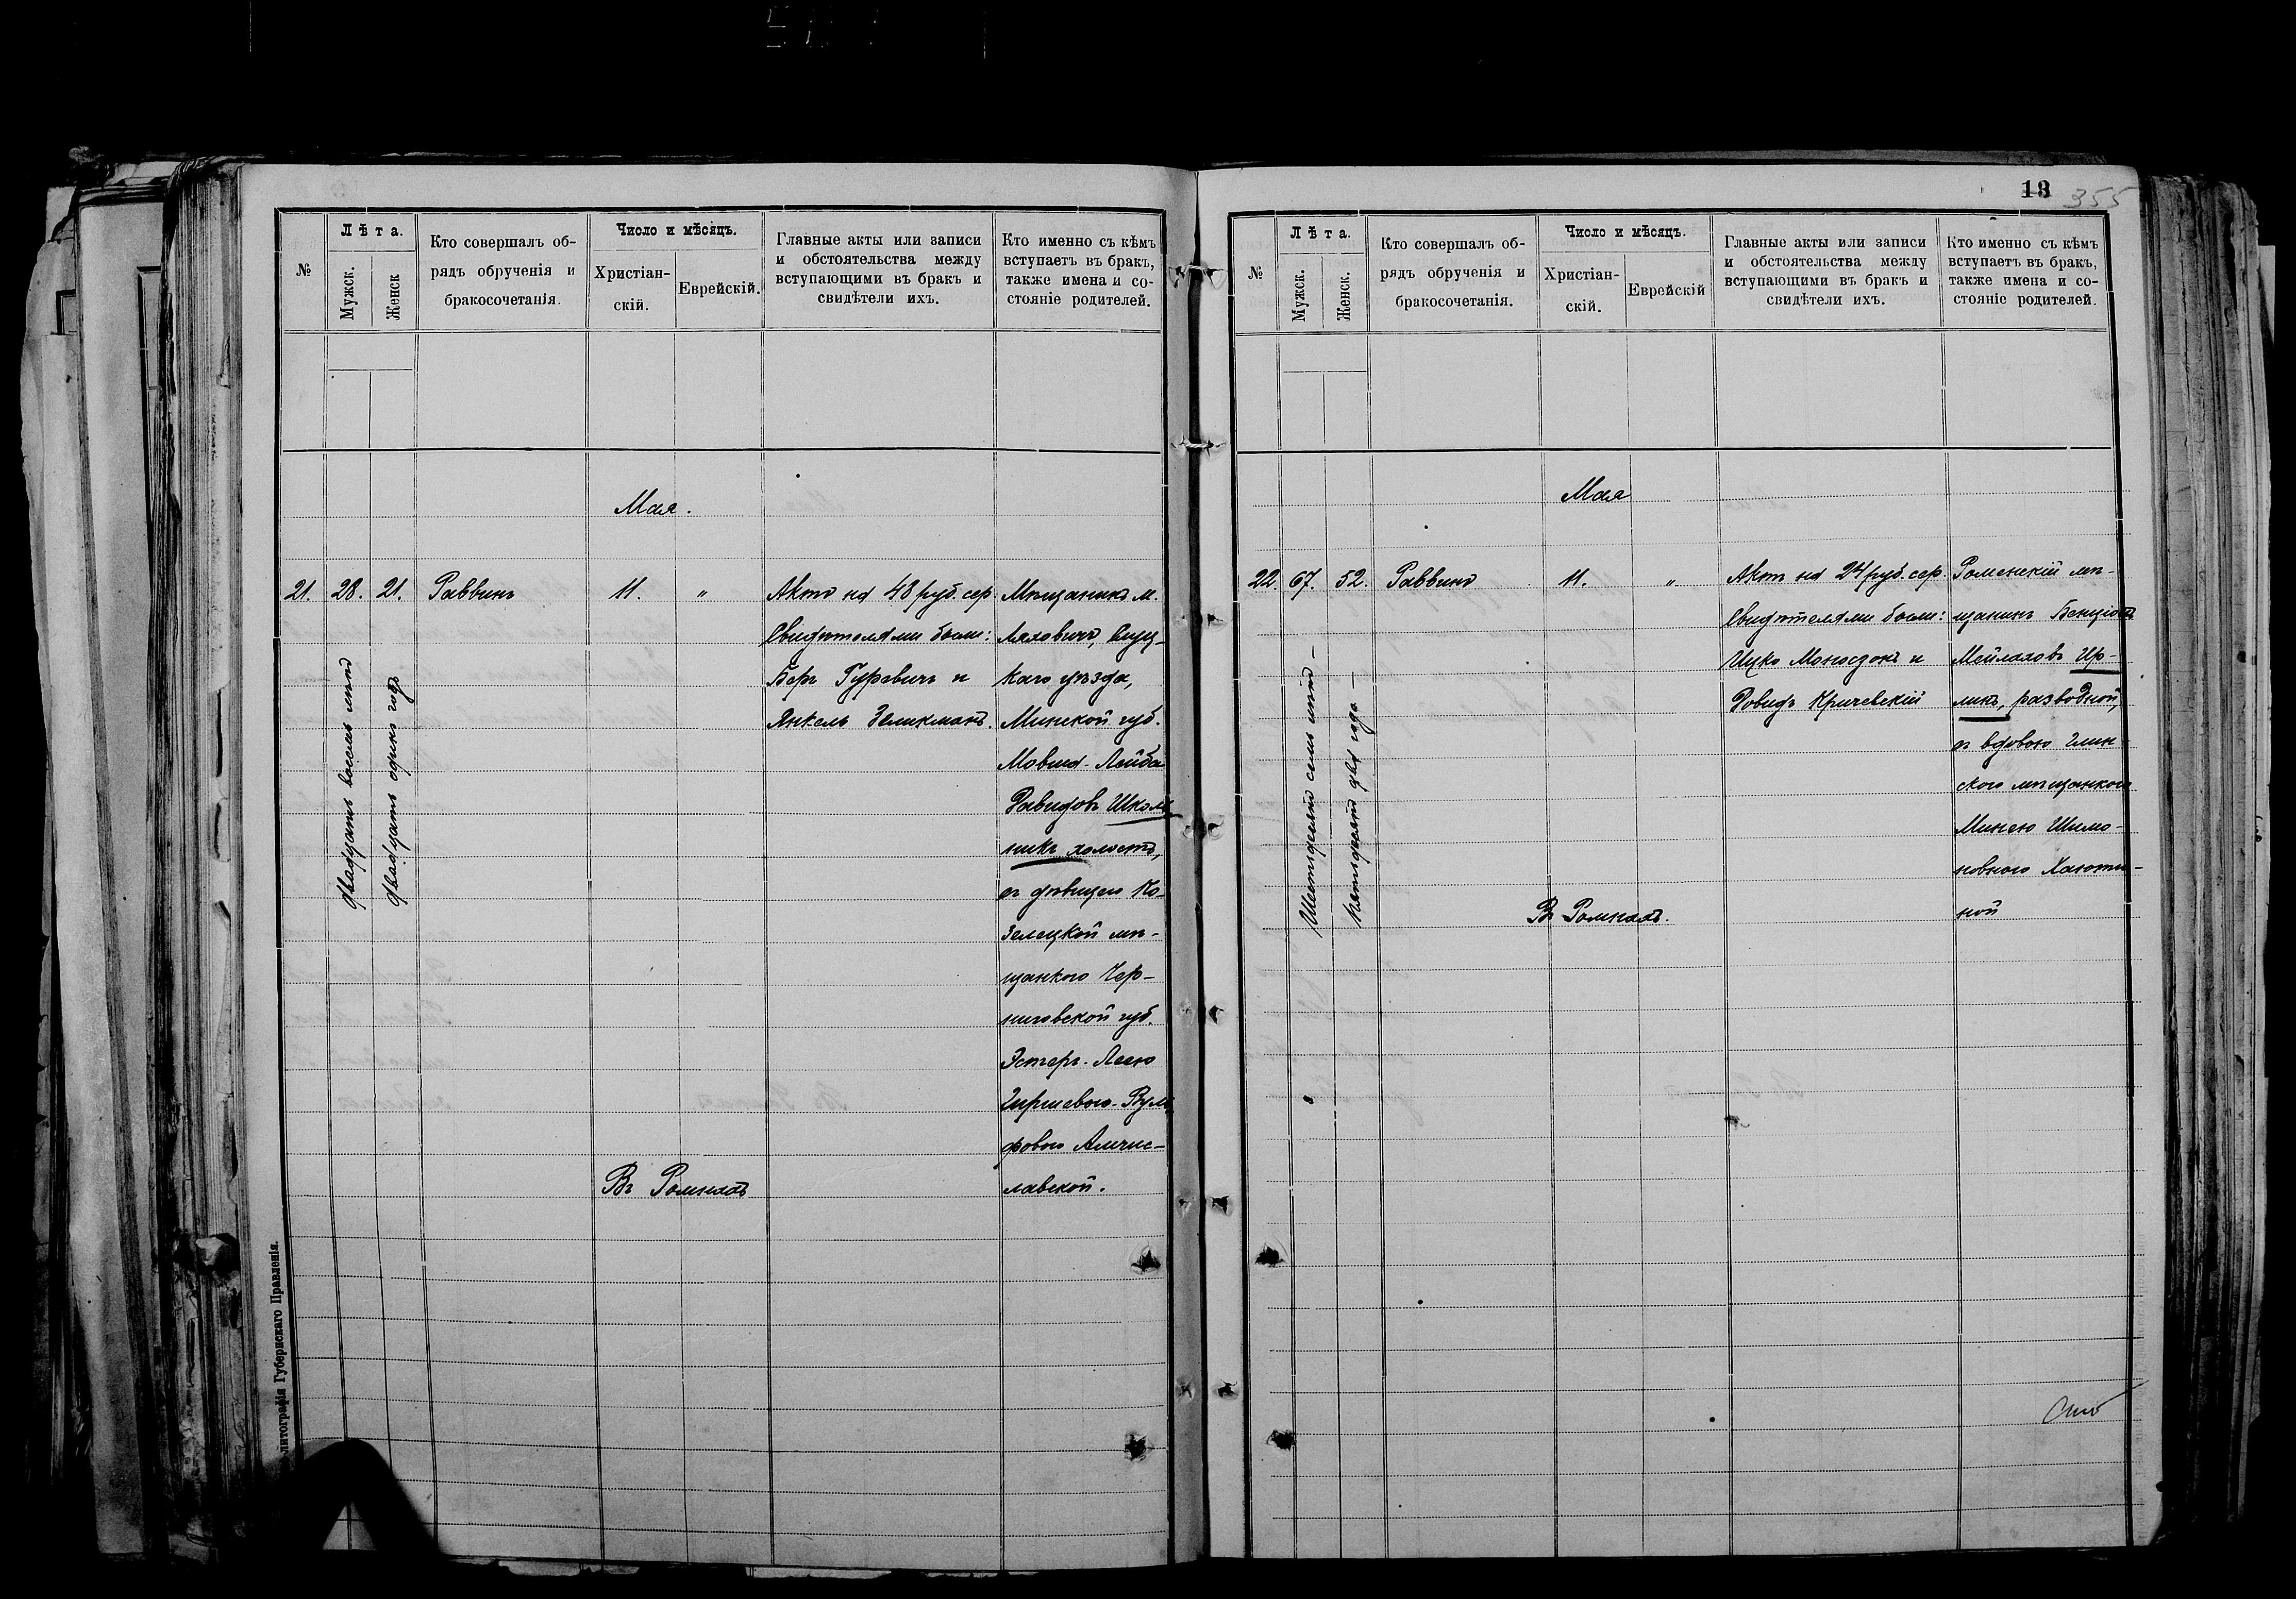 №
Лѣта.
Мужск.
Женск
Кто совершалъ об-
рядъ обрученія и
бракосочетанія.
Число и мѣсяцъ.
Христіан-
скій.
Еврейскій.
Главные акты или записи
и обстоятельства между
вступающими въ бракъ и
свидѣтели ихъ.
Кто именно съ кѣмъ
вступаетъ въ бракъ,
также имена и со-
стояніе родителей.
Мая.
21. 28. 21. Раввинъ 11. "
двадцать восемь лѣтъ
двадцать одинъ годъ
Актъ на 48 руб. сер.
Свидѣтелями были:
Беръ Гуревичъ и
Янкель Зеликманъ.
Мѣщанинъ м.
Ляховичъ, Слуц-
каго уѣзда,
Минской губ.
Мовша-Лейба
Давидовъ Школь-
никъ холостъ,
съ дѣвицею Ко-
зелецкой мѣ-
щанкою Чер-
ниговской губ.
Эстеръ-Леею
Гиршевою-Вуль-
фовою
лавской.
Въ Ромнахъ
литографія Губернскаго Правленія.
13
355
№
Лѣта.
Мужск.
Женск.
Кто совершалъ об-
рядъ обрученія и
бракосочетанія.
Число и мѣсяцъ.
Христіан-
скій.
Еврейскій
Главные акты или записи
и обстоятельства между
вступающими въ бракъ и
свидѣтели ихъ.
Кто именно съ кѣмъ
вступаетъ въ бракъ,
также имена и со-
стояніе родителей.
Мая
22. 67. 52. Раввинъ 11. "
Шестьдесятъ семь лѣтъ —
пятьдесятъ два года —
Актъ на 24 руб. сер.
Свидѣтелями были:
Ицко Моносзонъ и
Довидъ Кричевскій
Роменскій мѣ-
щанинъ Бенціонъ
Мейлаховъ Ир-
ликъ, разводной,
съ вдовою Глин-
скою мѣщанкою
Минею Шимо-
новною Хаюти-
ной
Въ Ромнахъ.